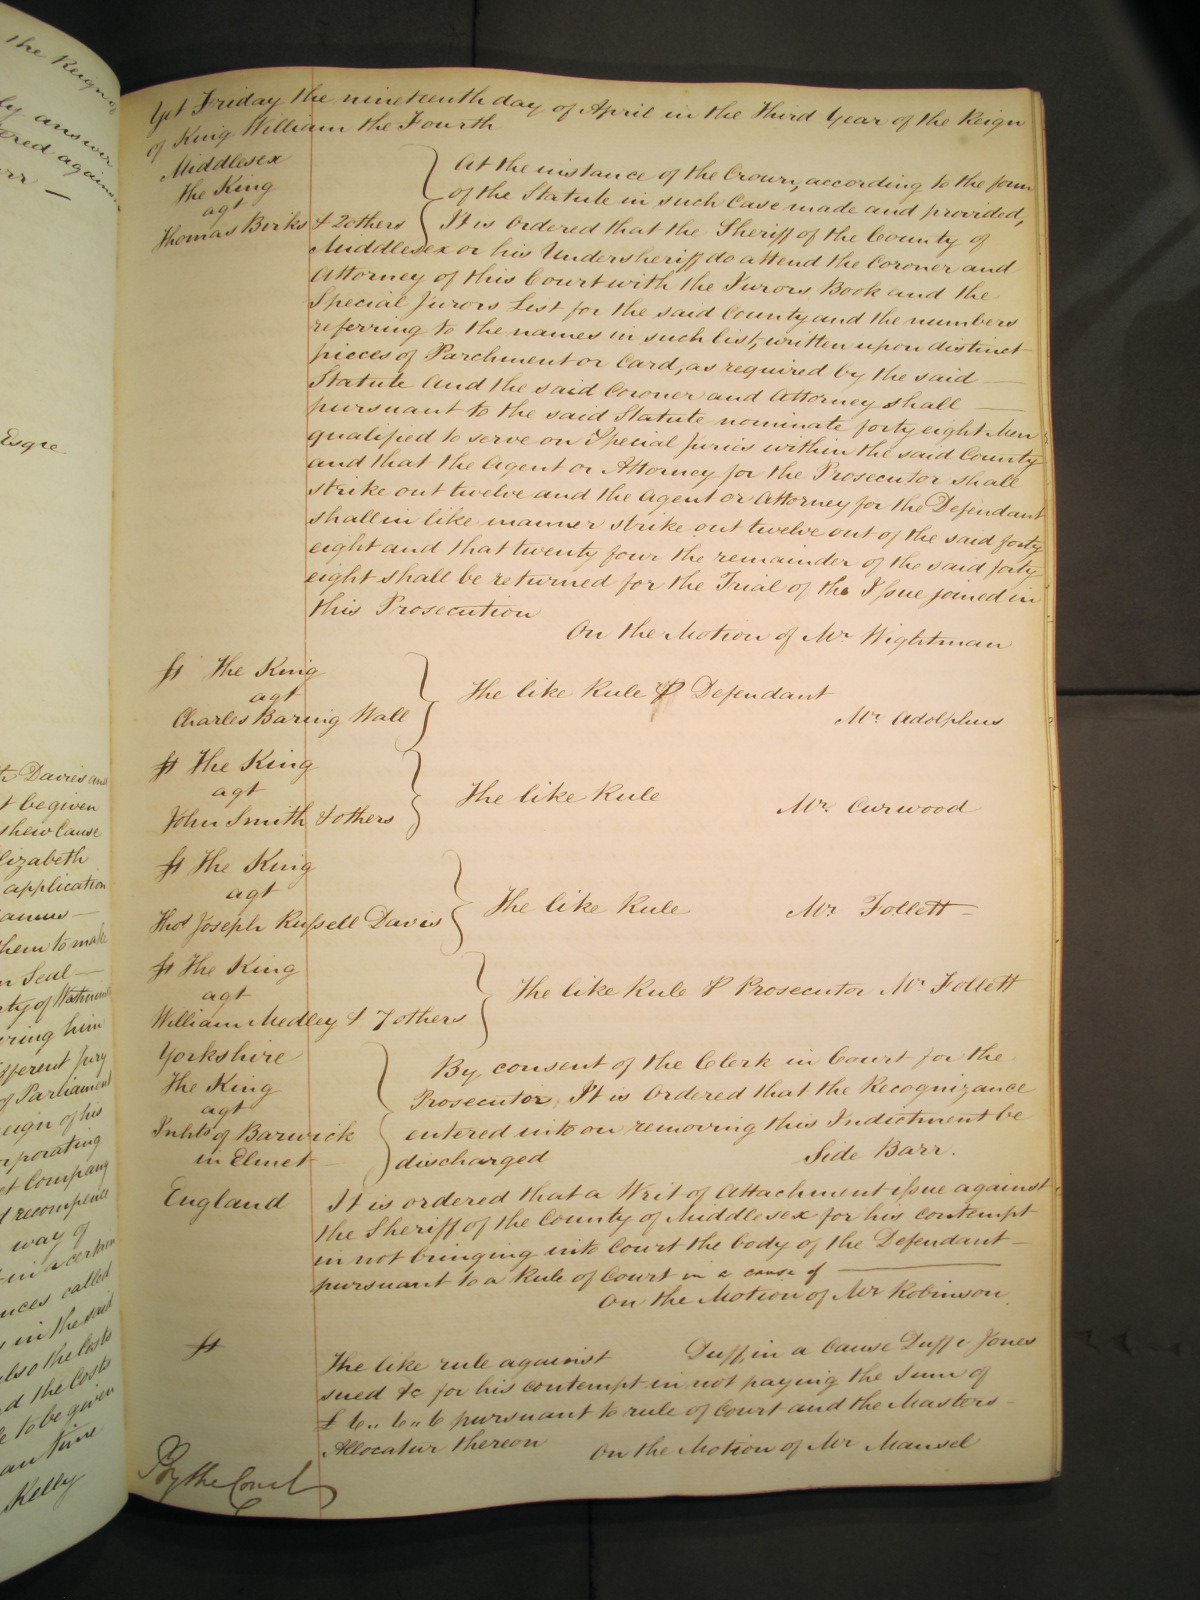 the Reign of
ly answer
ered against
Esqre
Davies and
t be given
shew Cause
lizabeth
application
them to make
Seal —
ring him
ifferent Jury
of Parliament
eign of his
rporating
et Company
recompence
way of
in a certain
nces called
in the said
also the Costs
d the Costs
to be given
Kelly
Yet Friday the nineteenth day of April in the Third Year of the Reign
of King William the Fourth
Middlesex
The King
agt
Thomas Birks & 2 others
At the instance of the Crown, according to the form
of the Statute in such Case made and provided,
It is Ordered that the Sheriff of the County of
Middlesex or his Undersheriff do attend the Coroner and
Attorney of this Court with the Jurors Book and the
Special Jurors List for the said County and the numbers
referring to the names in such list, written upon distinct
pieces of Parchment or Card, as required by the said —
Statute And the said Coroner and Attorney shall —
pursuant to the said Statute nominate forty eight Men
qualified to serve on Special Juries within the said County
and that the Agent or Attorney for the Prosecutor shall
strike out twelve and the Agent or Attorney for the Defendant
shall in like manner strike out twelve out of the said forty
eight and that twenty four the remainder of the said forty
eight shall be returned for the Trial of the Issue joined in
this Prosecution
On the Motion of Mr. Wightman
The King
agt
Charles Baring Wall
The like Rule P Defendant
Mr. Adolphus
The King
agt
John Smith & others
The like Rule
Mr. Curwood
The King
agt
Thos Joseph Russell Davis
The like Rule
Mr. Follett —
The King
agt
William Medley & 7 others
The like Rule P Prosecutor Mr Follett
Yorkshire
The King
agt
Inhts of Barwick
in Elmet
By consent of the Clerk in Court for the
Prosecutor It is Ordered that the Recognizance
entered into on removing this Indictment be
discharged
Side Barr.
England
It is ordered that a Writ of Attachment issue against
the Sheriff of the County of Middlesex for his contempt
in not bringing into Court the body of the Defendant —
pursuant to a Rule of Court in a cause of
On the Motion of Mr Robinson
The like rule against Duff, in a Cause Duff v Jones
sued &c for his contempt in not paying the Sum of
£6.. 6.. 6 pursuant to rule of Court and the Masters —
Allocatur thereon
On the Motion of Mr Mansel
By the Court